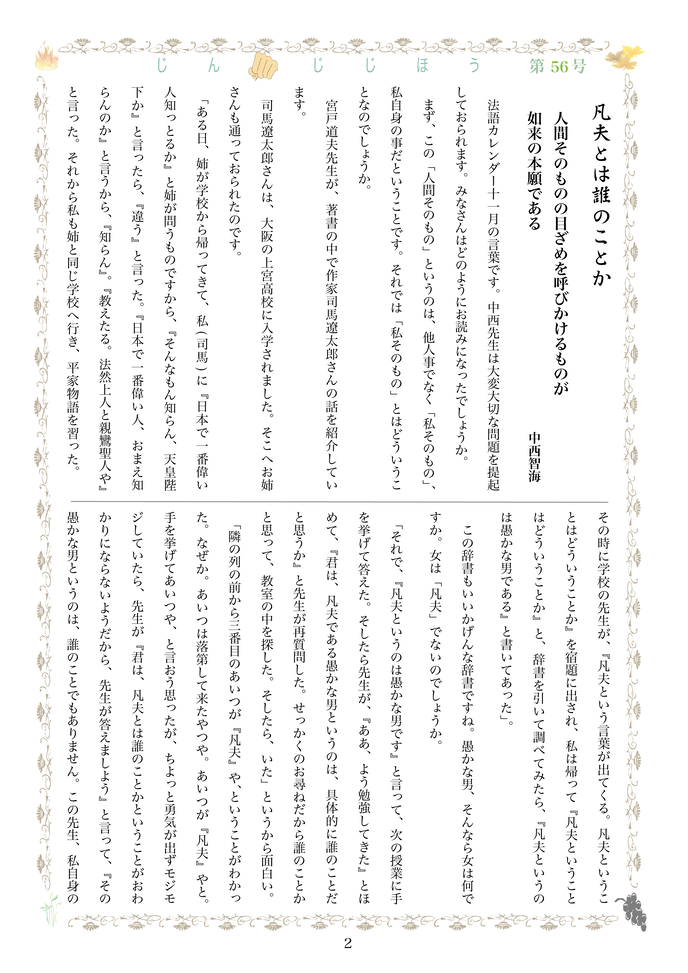 じん じじほう 第56号
凡夫とは誰のことか
人間そのものの目ざめを呼びかけるものが
如来の本願である 中西智海
法語カレンダー十一月の言葉です。中西先生は大変大切な問題を提起
しておられます。みなさんはどのようにお読みになったでしょうか。
まず、この「人間そのもの」というのは、他人事でなく「私そのもの」、
私自身の事だということです。それでは「私そのもの」とはどういうこ
となのでしょうか。
宮戸道夫先生が、著書の中で作家司馬遼太郎さんの話を紹介してい
ます。
司馬遼太郎さんは、大阪の上宮高校に入学されました。そこへお姉
さんも通っておられたのです。
「ある日、姉が学校から帰ってきて、私(司馬)に『日本で一番偉い
人知っとるか』と姉が問うものですから、『そんなもん知らん、天皇陛
下か』と言ったら、『違う』と言った。『日本で一番偉い人、おまえ知
らんのか』と言うから、『知らん』。『教えたる。法然上人と親鸞聖人や』
と言った。それから私も姉と同じ学校へ行き、平家物語を習った。
その時に学校の先生が、『凡夫という言葉が出てくる。凡夫というこ
とはどういうことか』を宿題に出され、私は帰って『凡夫ということ
はどういうことか』と、辞書を引いて調べてみたら、『凡夫というの
は愚かな男である』と書いてあった」。
この辞書もいいかげんな辞書ですね。愚かな男、そんなら女は何で
すか。女は「凡夫」でないのでしょうか。
「それで、『凡夫というのは愚かな男です』と言って、次の授業に手
を挙げて答えた。そしたら先生が、『ああ、よう勉強してきた』とほ
めて、『君は、凡夫である愚かな男というのは、具体的に誰のことだ
と思うか』と先生が再質問した。せっかくのお尋ねだから誰のことか
と思って、教室の中を探した。そしたら、いた」というから面白い。
「隣の列の前から三番目のあいつが『凡夫』や、ということがわかっ
た。なぜか。あいつは落第して来たやつや。あいつが『凡夫』やと。
手を挙げてあいつや、と言おう思ったが、ちょっと勇気が出ずモジモ
ジしていたら、先生が『君は、凡夫とは誰のことかということがおわ
かりにならないようだから、先生が答えましよう』と言って、『その
愚かな男というのは、誰のことでもありません。この先生、私自身の
2